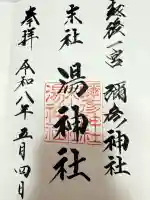 越後一宮 彌彦神社
末社
湯神社
奉拝
令和八年五月四日